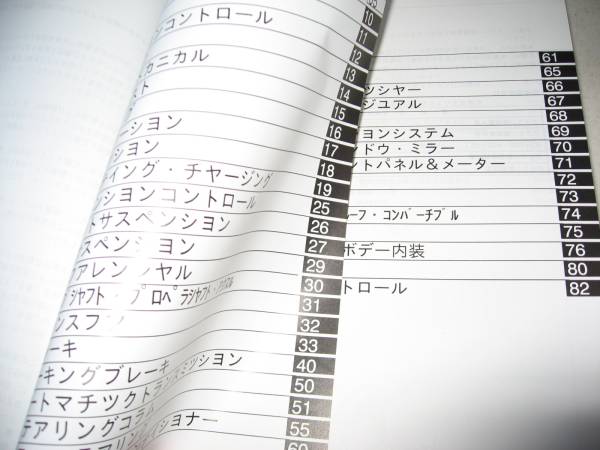 05
ンコントロール
10
11
カニカル
12
スト
13
14
ーション
15
ション
16
ィング・チャージング
17
ンションコントロール
18
トサスペンション
19
スペンション
25
アレンシャル
26
シャフト・プロペラシャフト・
27
ンスファ
29
ーキ
30
ーキングブレーキ
31
ートマチックトランスミッション
32
テアリングコラム
33
40
ィショナー
50
51
55
60
61
65
ッシャー
66
ジュアル
67
68
ョンシステム
69
ンドウ・ミラー
70
ントパネル&メーター
71
72
73
ルーフ・コンバーチブル
74
75
ボデー内装
76
80
トロール
82